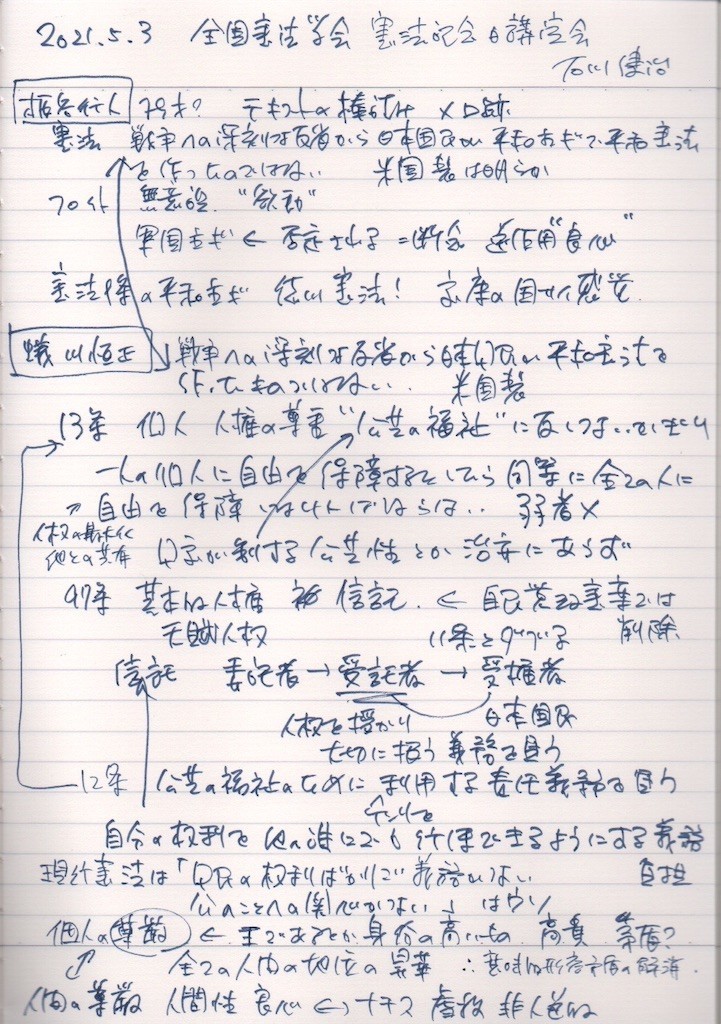 2021.5.3 全国憲法学会 憲法記念日講演会
石川健治
柄谷行人 テキスト
憲法 戦争への深刻な反省から日本国民が平和主義で平和憲法
を作ったのではない 米国製は明らか
フロイト 無意識 "欲動"
軍国主義 ← 否定される = 断念 逆作用 "良心"
憲法 の平和主義 徳川憲法!
蟻川恒正 戦争への深刻な反省から日本国民が平和憲法を
作ったものではない.. 米国製
13条 個人 人権の尊重 "公共の福祉" に反しない
一人の個人に自由を保障するとしたら同等に全ての人に
自由を保障しなければならない.. 弱者×
人権の
他との共存 国家が制する公共性とか治安にあらず
97条 基本的人権 信託. ← 自民党改憲草案では
天賦人権 11条とダブっている 削除
信託 委託者 → 受託者 → 受権者
人権を授かり 日本国民
大切に扱う義務を負う
12条 公共の福祉のために利用する責任義務を負う
自分の権利を他の誰にでも行使できるようにする義務
現行憲法は「国民の権利ばかりで義務がない 負担
公のことへの関心がない」はウソ
個人の尊厳 ← 王であるとか身分の高いもの 高貴 矛盾?
全ての人間の地位の昇華 ∴ 矛盾の解消.
人間の尊厳 人間性 良心 ↔ ナチス 虐殺 非人道的